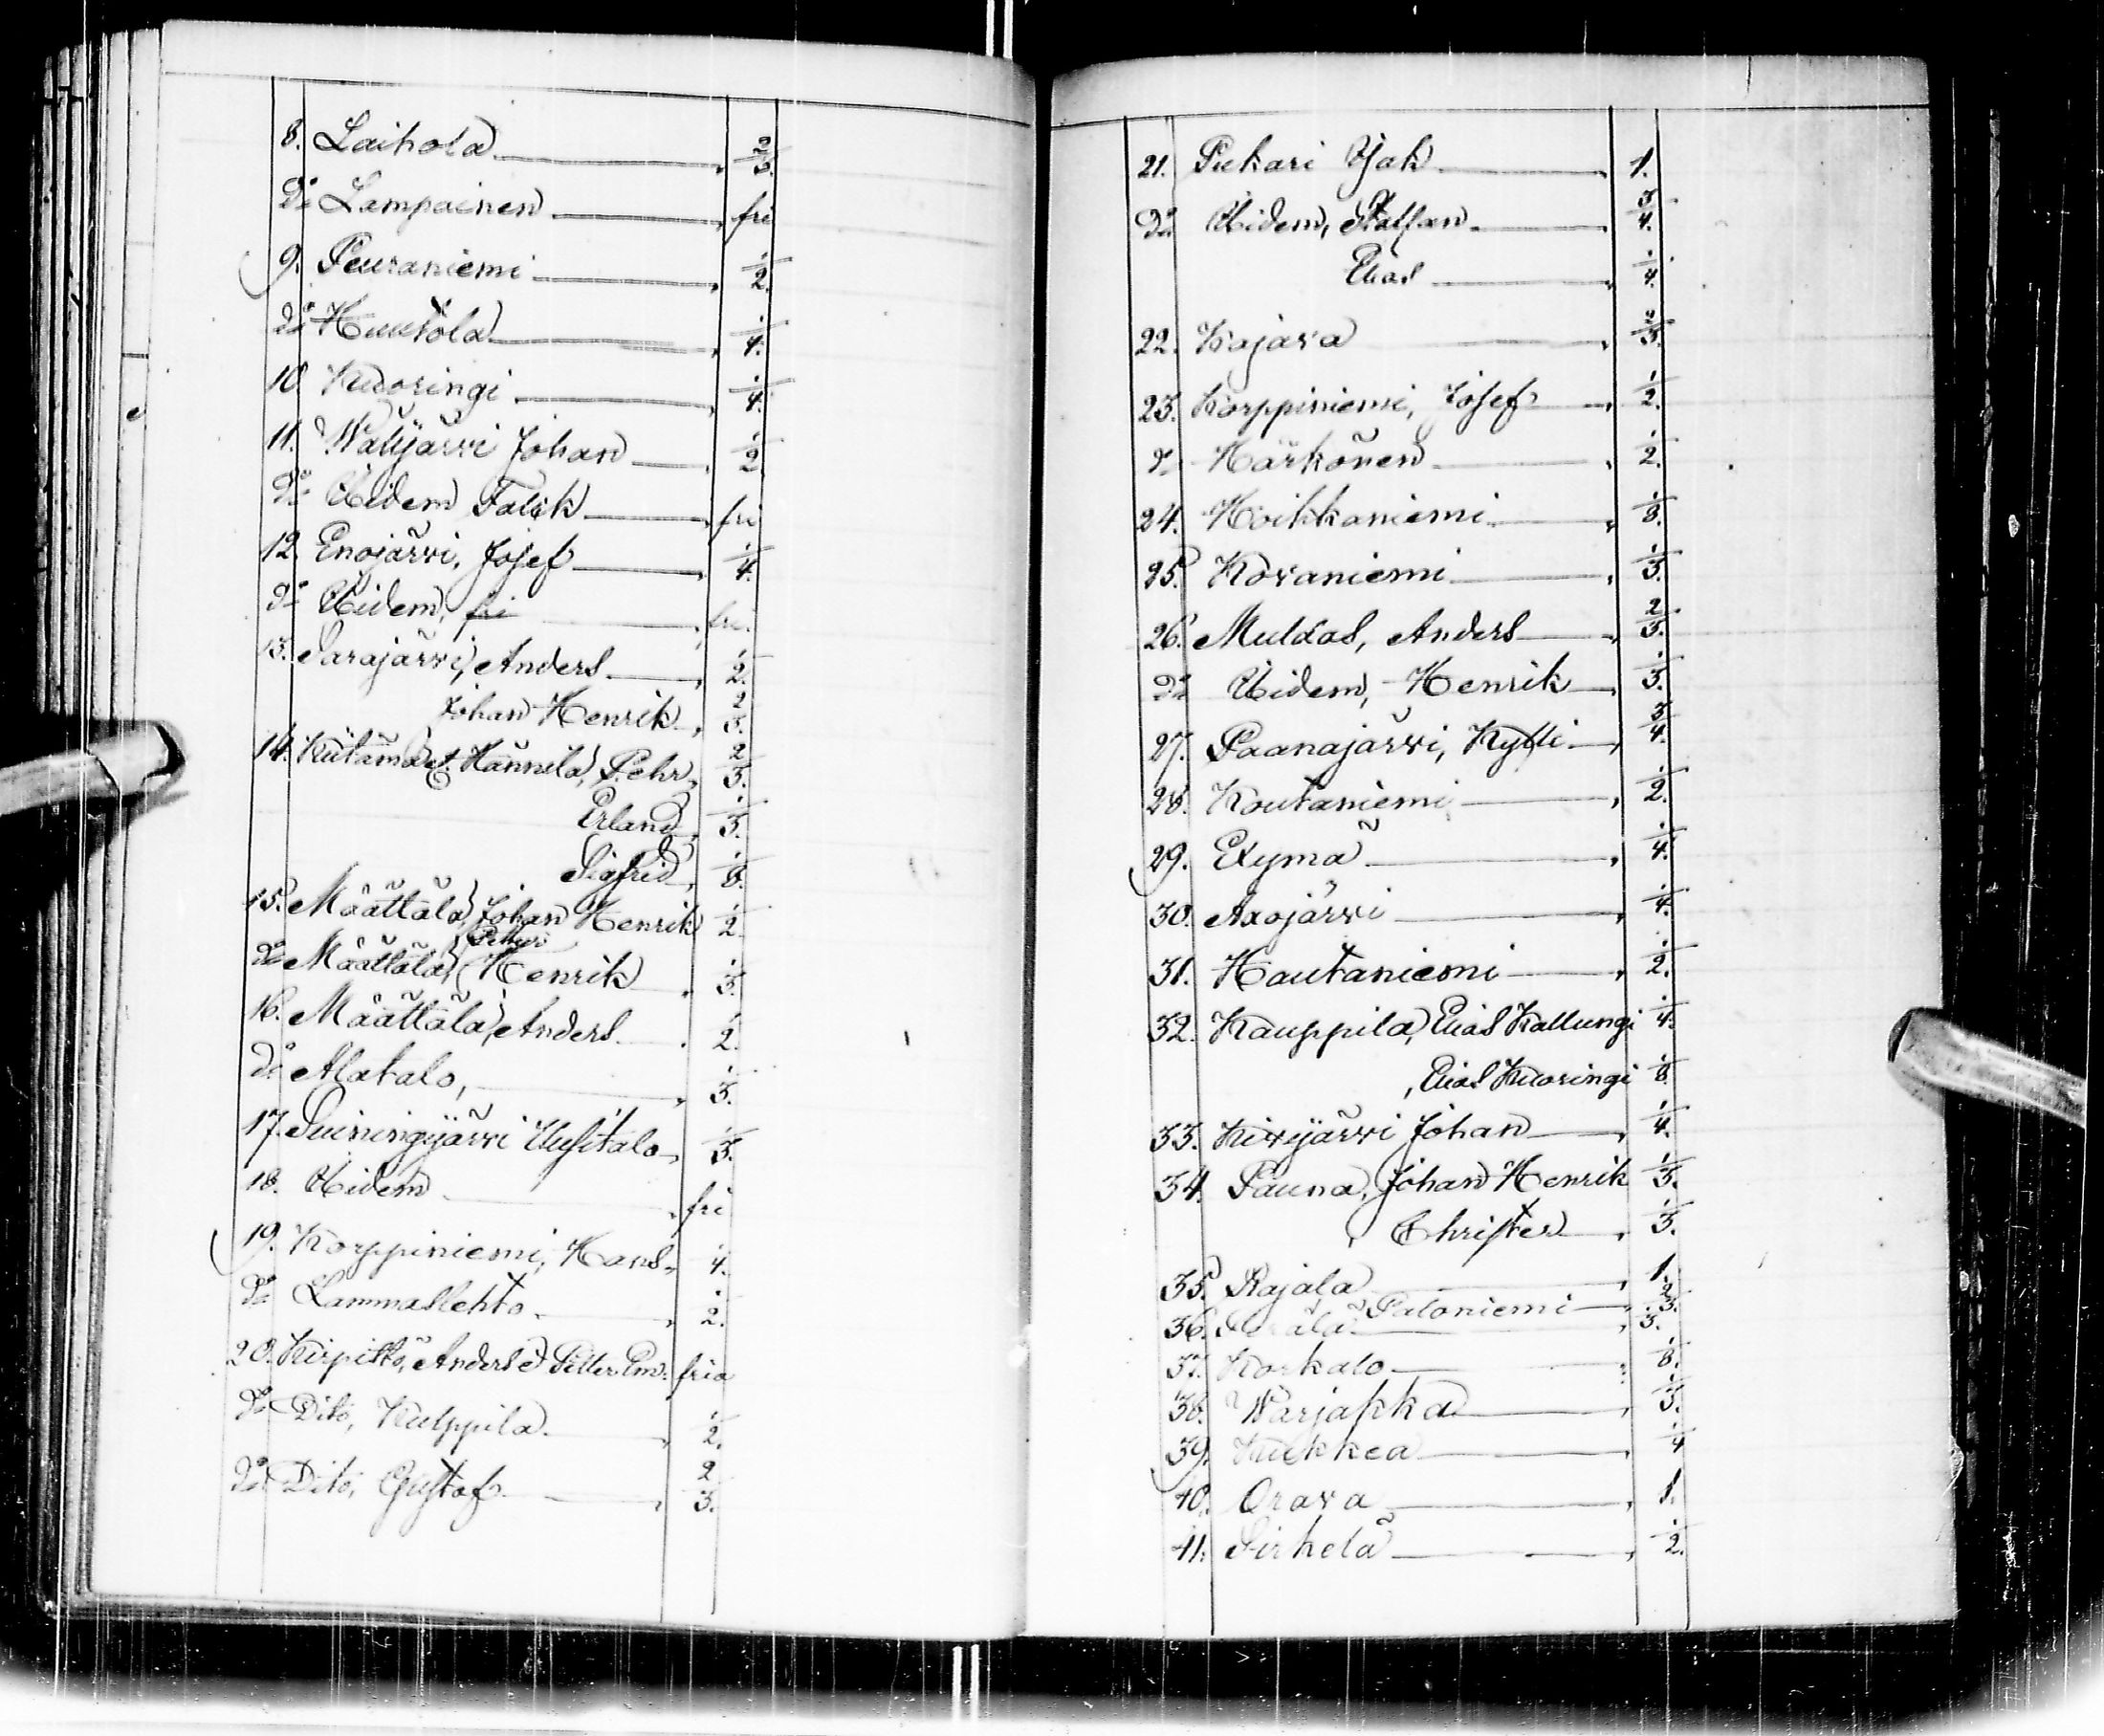 8. Laihola 2/3.
do Lampainen fri
9. Peuraniemi 1/2.
do Huutola 1/4.
10. Kuoringi 1/4.
11. Waltjärvi Johan 1/2.
do Ibidem Falck fri
12. Enojärvi, Josef 1/4.
do Ibidem, fri fri.
13. Sarajärvi, Anders 1/2.
Johan Henrik 2/3.
14. Kiitämä et. Hännilä, Pehr 2/3.
Erland 1/3.
Sigfrid 1/8.
15. Määttälä, Johan Henrik 1/2.
Petteri
do Määttälä, Henrik 1/3.
16. Määttälä, Anders 1/2.
do Alatalo, 1/3.
17. Suiningijärvi Uusitalo 1/3.
18. Ibidem fri
19. Korppiniemi, Hans 1/4.
do Lammaslehto 1/2.
20. Kirpistö, Anders & Petter Em. fria
do Dito, Kulppila 1/2.
do Dito, Gustaf 2/3.
21. Piekari Isak 1.
do Ibidem, Staffan 3/4.
Elias 1/4.
22. Kajava 2/3.
23. Korppiniemi, Josef 1/2.
do Härkönen 1/2.
24. Hoikkaniemi 1/8.
25. Kovaniemi 1/3.
26. Muldas, Anders 2/3.
do Ibidem, Henrik 1/3.
27. Paanajärvi, Kylli 3/4.
28. Koutaniemi 1/2.
29. Exymä 1/4.
30. Axojärvi 1/4.
31. Hautaniemi 1/2.
32. Kauppila, Elias Kallungi 1/4.
, Elias Kuoringi 1/8.
33. Kivijärvi Johan 1/4.
34. Pauna, Johan Henrik 1/3.
, Christer 1/3.
35. Rajala 1.
Paloniemi 2/3.
36. 1/3.
37. Korkalo 1/8.
38. Warjakka 1/3.
39. Kukkea 1/4
40. Orava 1.
41. Sirkelä 1/2.